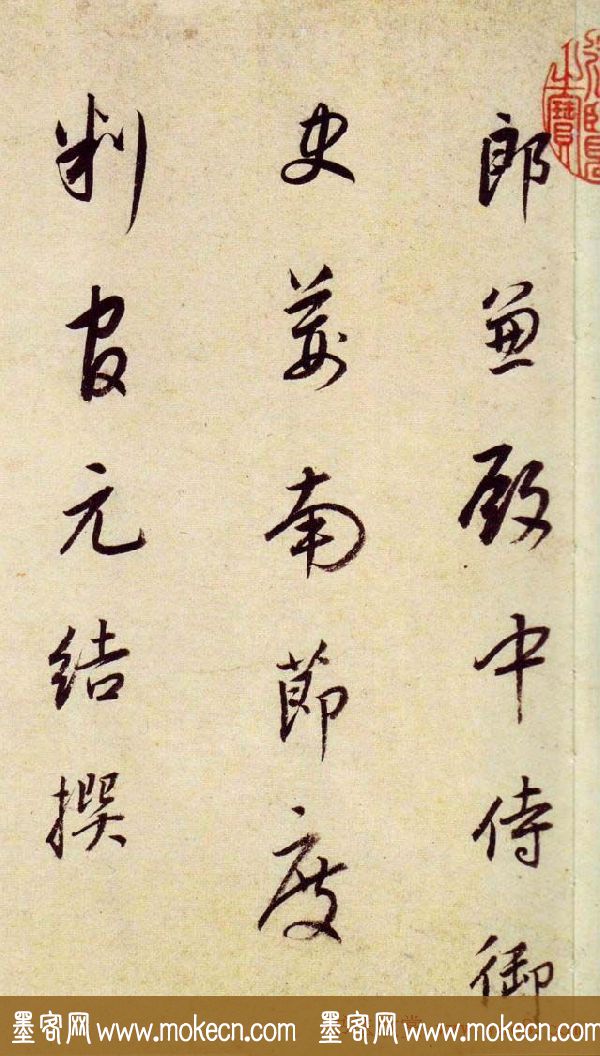 郎兼殿中侍御
史荊南節度
判官元結撰
之寶
墨客网 www.mokecn.com 墨客网 www.mokecn.com